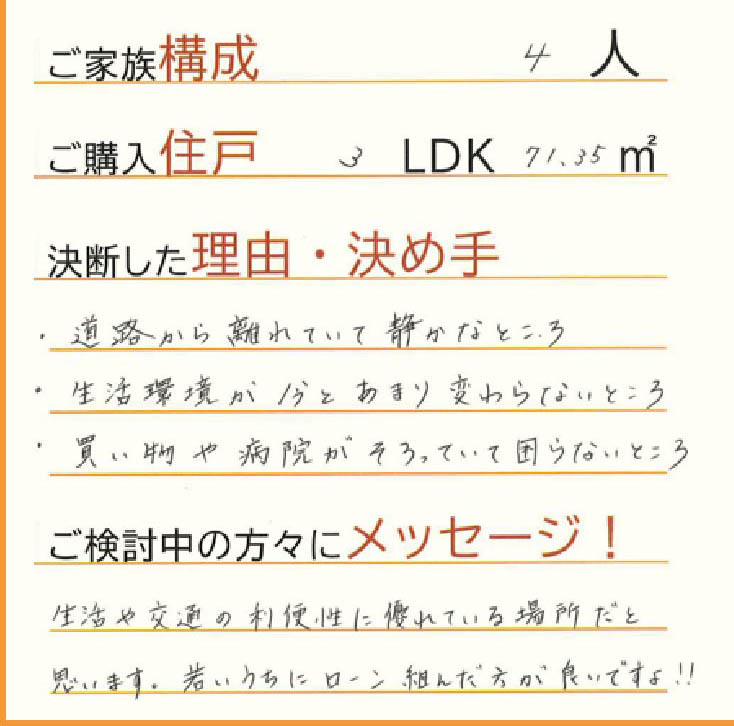 ご家族構成 4 人
ご購入住戸 3 LDK 71.35 ㎡
決断した理由・決め手
・道路から離れていて静かなところ
・生活環境が今とあまり変わらないところ
・買い物や病院がそろっていて困らないところ
ご検討中の方々にメッセージ！
生活や交通の利便性に優れている場所だと
思います。若いうちにローン組んだ方が良いですよ!!